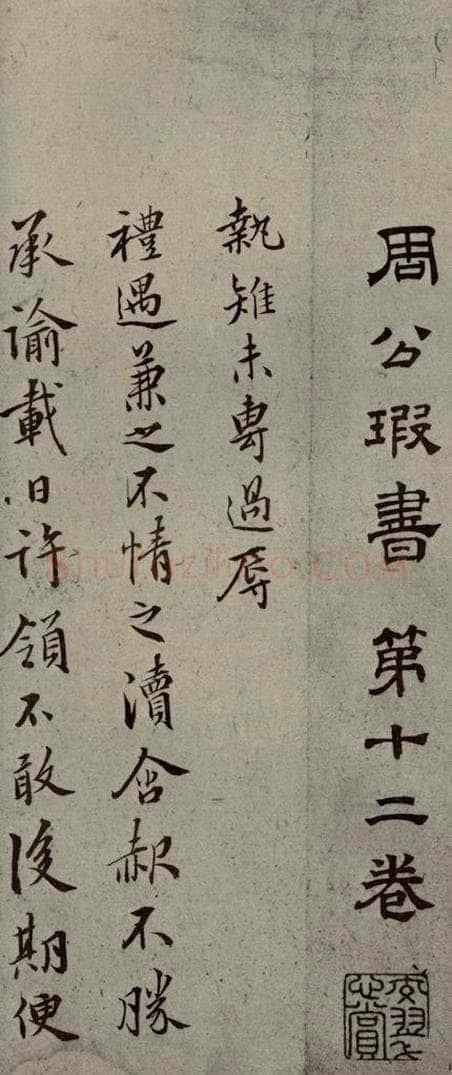 周公瑕書 第十二卷
執雉未專過辱
禮遇兼之不情之瀆含赧不勝
承諭載日許領不敢後期便